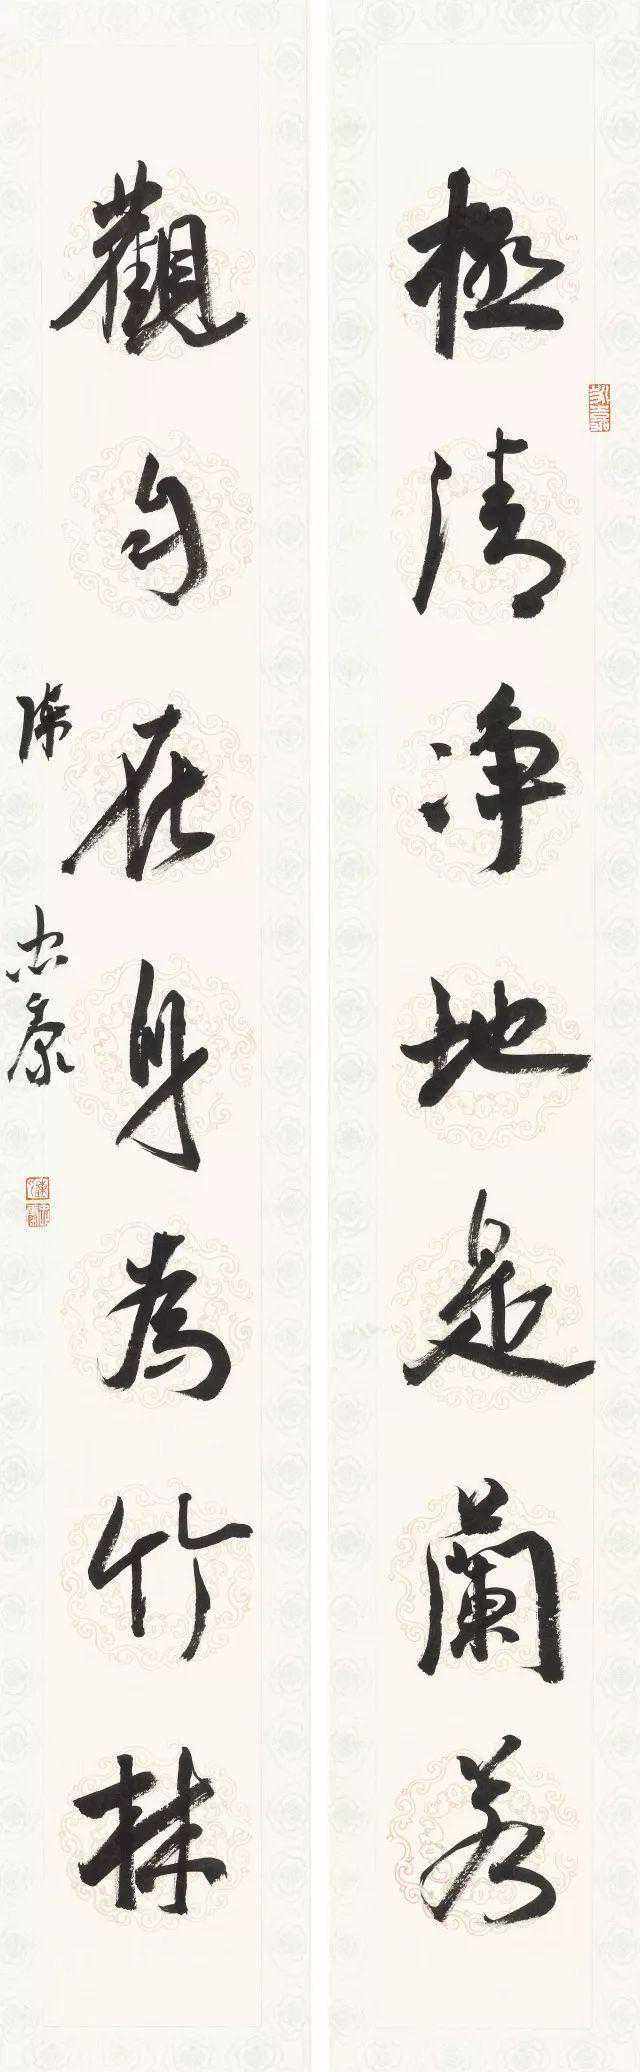 極清淨地是蘭若
觀自在身為竹林
陳忠康